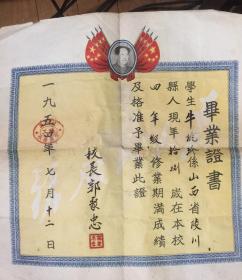 畢業證書
學生牛執珍係山西省陵川
縣人現年拾捌歲在本校
四年級修業期滿成績
及格准予畢業此證
校長郭聚忠
一九五四年七月十二日